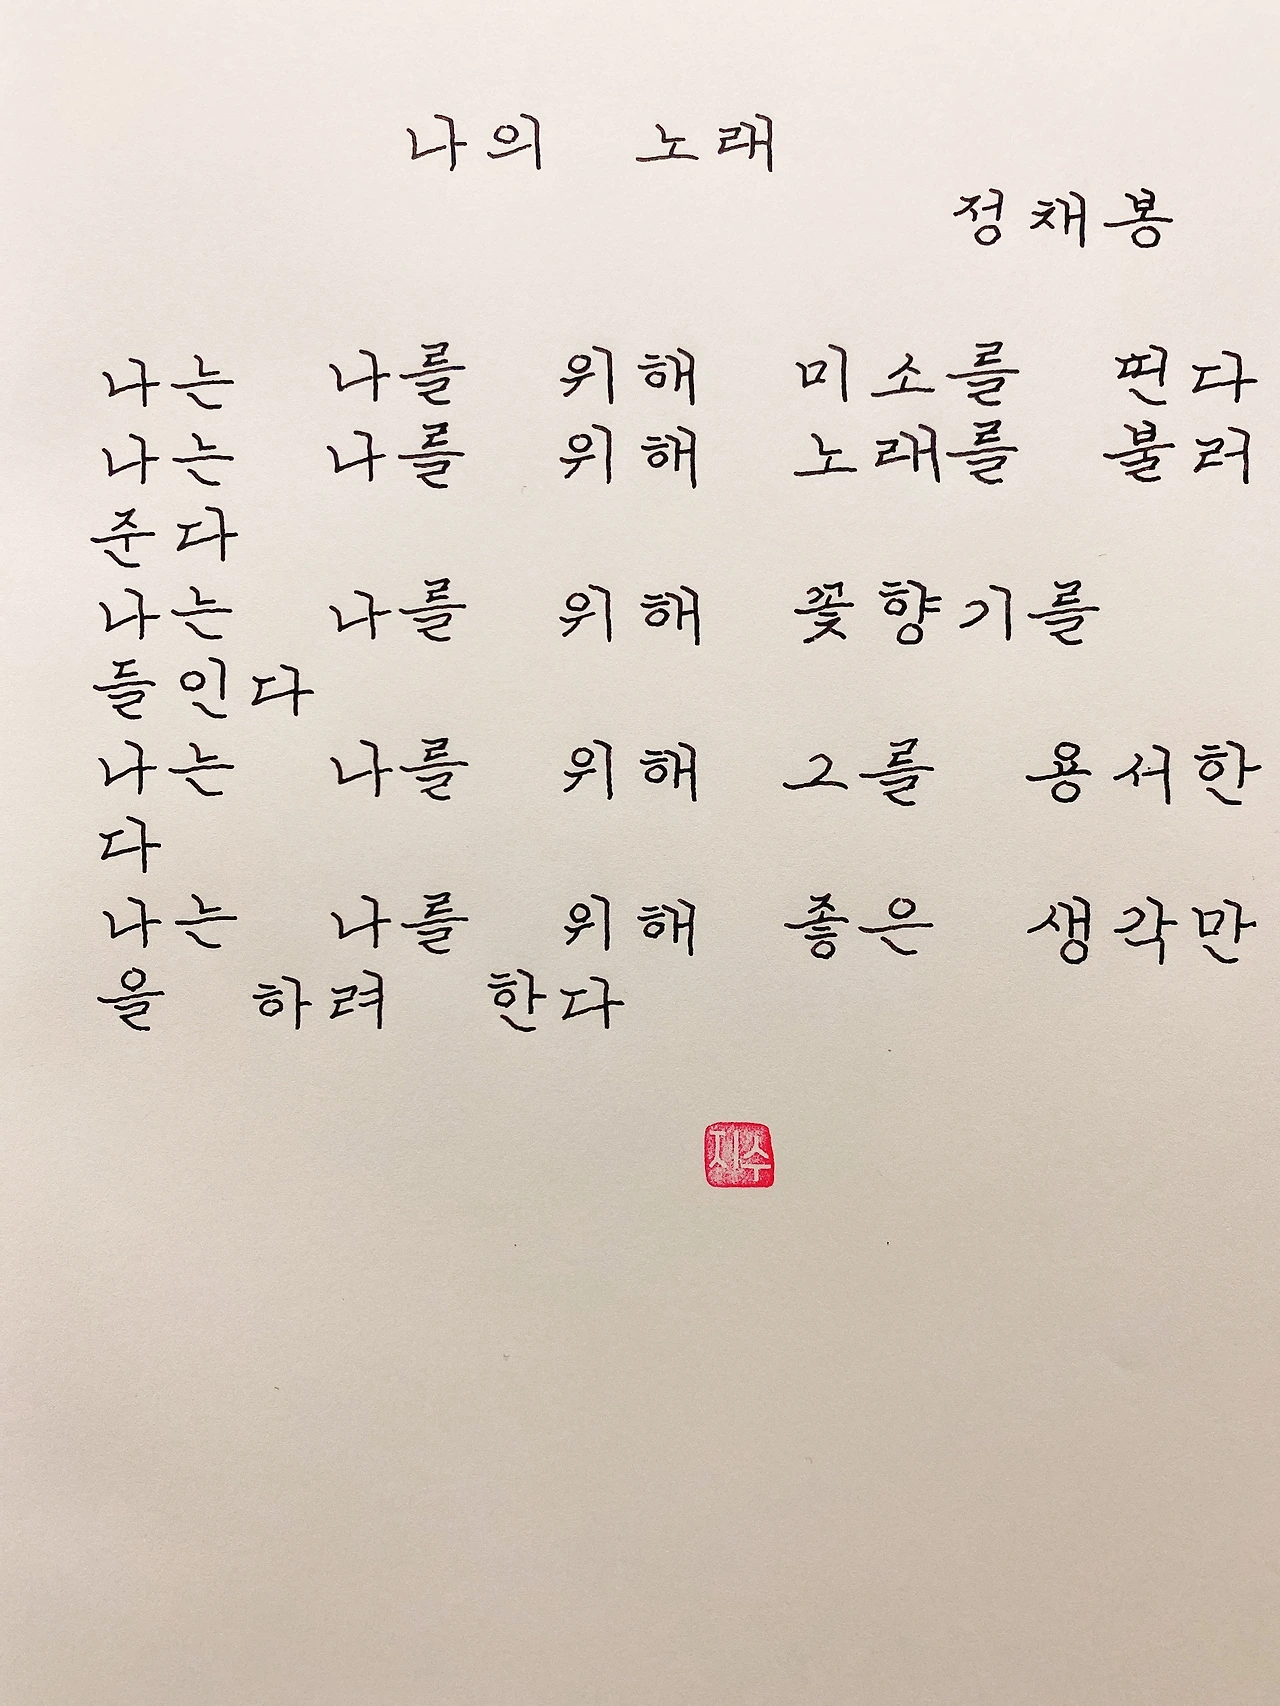 나의 노래
정채봉
나는 나를 위해 미소를 띤다
나는 나를 위해 노래를 불러
준다
나는 나를 위해 꽃향기를
들인다
나는 나를 위해 그를 용서한
다
나는 나를 위해 좋은 생각만
을 하려 한다
지수